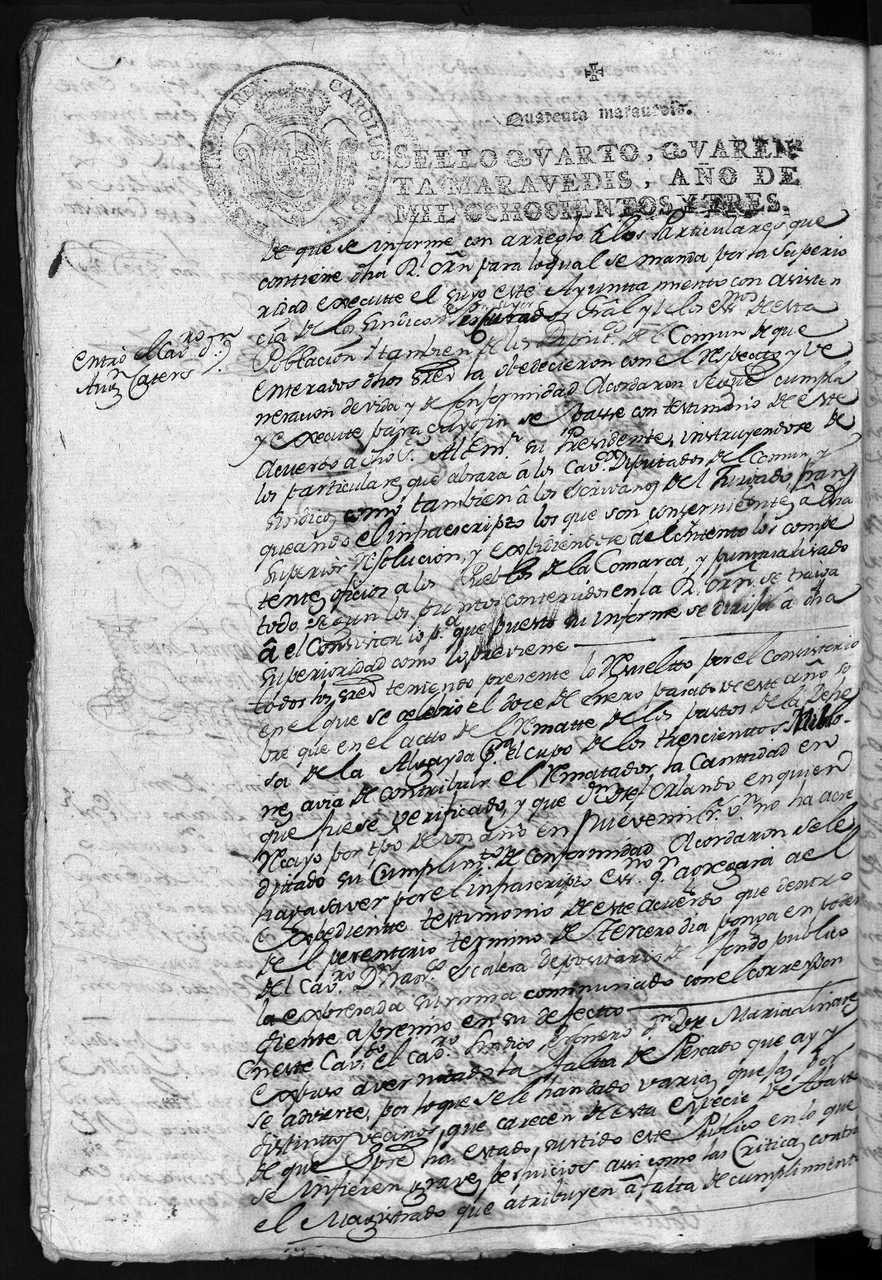 CAROLUS IV D G
HISPANIAR REX
Quarenta maravedis.
SELLO QVARTO, QVAREN
TA MARAVEDIS, AÑO DE
MIL OCHOCIENTOS Y TRES.
de que se informe con arreglo a los Particulares que
contiene dha Rl. orn para lo qual se manda por la Superio
ridad execute el suyo este Ayuntamiento con asisten
cia de los Sindicos gral y de los de esta
Poblacion y tambien de los Diput.s de el Comun de que
entró el Cav.ro d.n
Ant.n
enterados dhos Sres la obedecieron con el Respecto y ve
neracion devida y de conformidad Acordaron se que cumpla
y execute para cuyo fin se passe con testimonio de este
Acuerdo a su Presidente, instruyendose de
los particulares que abraza â los Cav.s Diputados de el Comun y
Sindicos como tambien â los escrivanos de el Juzgado fran
queando el infraescripto los que son concerniente â dha
Superior resolucion, y expidiendose los compe
tentes oficios a los Pueblos de la Comarca, y puntualizado
todo segun los puntos contenidos en la Rl. orn se traiga
â el Consistorio p.a que puesto su informe se dirija â dha
Superioridad como lo previene
todos los Sres teniendo presente lo Resuelto por el Consistorio
en el que se celebro el doce de Enero pasado de este año so
bre que en el acto de el Rematte de los pastos de la Dehe
sa de la Alvayda p.r el cupo de los trescientos
avia de contribuir el Rematador la Canttidad en
que fuese verificado, y que d.n Orlando en quien
Recayo por tpo de un año en no ha acre
ditado su Cumplim.to de Conformidad Acordaron se le
haga saver por el infrascripto es.no q. agregará a el
expediente testimonio de este acuerdo que dentro
de el perentorio termino de tercero dia ponga en poder
del Cav.ro D.n Fran.co Escalera depositario de el fondo publico
la expresada summa comminado con el correspon
diente apremio en su defecto
en este Cav.do el Cav.ro Sindico Perss.ro d.n Maria Linares
expuso aver notado la falta de Pescado que ay y
se advierte, por lo que se le han dado varias quejas por
distintos vecinos que carecen de esta especie de Abasto
de que spre ha estado surtido este Publico en lo que
se infieren graves perjuicios assi como las Criticas contra
el Magistrado que atribuyen â falta de cumplimiento